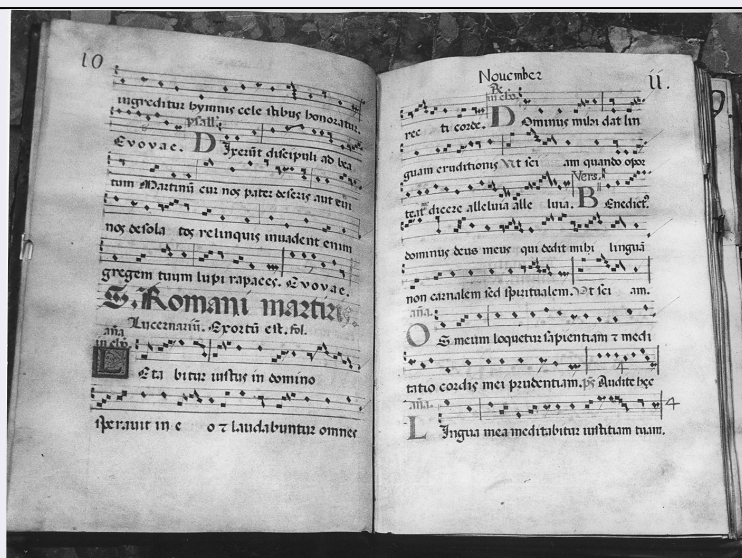 10
ingreditur hymnis cele stibus honoratur.
psall.
Evovae. Dixerūt discipuli ad bea
tum Martinū cur nos pater deseris aut cui
nos desola tos relinquis invadent enim
gregem tuum lupi rapaces. Evovae.
S. Romani martiris.
Lucernariū. Exortū est. fol.
aña
in cho.
Leta bitur iustus in domino
speravit in e o ⁊ laudabuntur omnes
November ii.
in cho.
rec ti corde. Dominus mihi dat lin
guam eruditionis Ut sci am quando opor
Vers.
teat dicere alleluia alle luia. Benedict⁹
dominus deus meus qui dedit mihi linguā
non carnalem sed spiritualem. Ut sci am.
aña.
Os meum loquetur sapientiam ⁊ medi
tatio cordis mei prudentiam. ps Audite hęc
4
aña.
4
Lingua mea meditabitur iustitiam tuam.